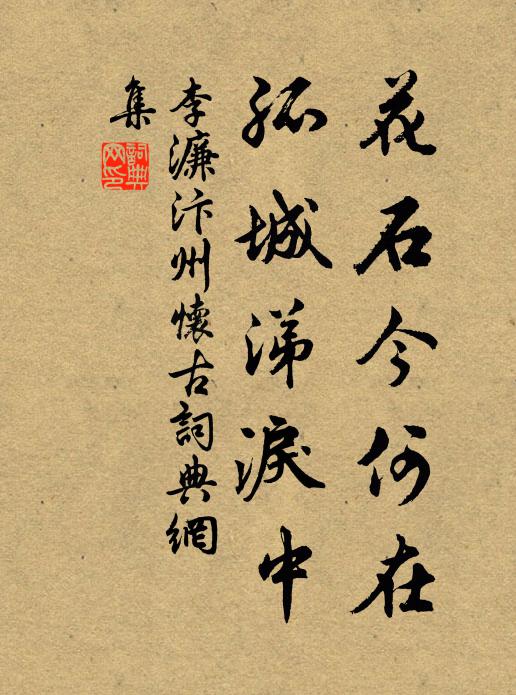 花石今何在
孤城涕淚中
李濂汴州懷古詞典網
集
詞典
网印